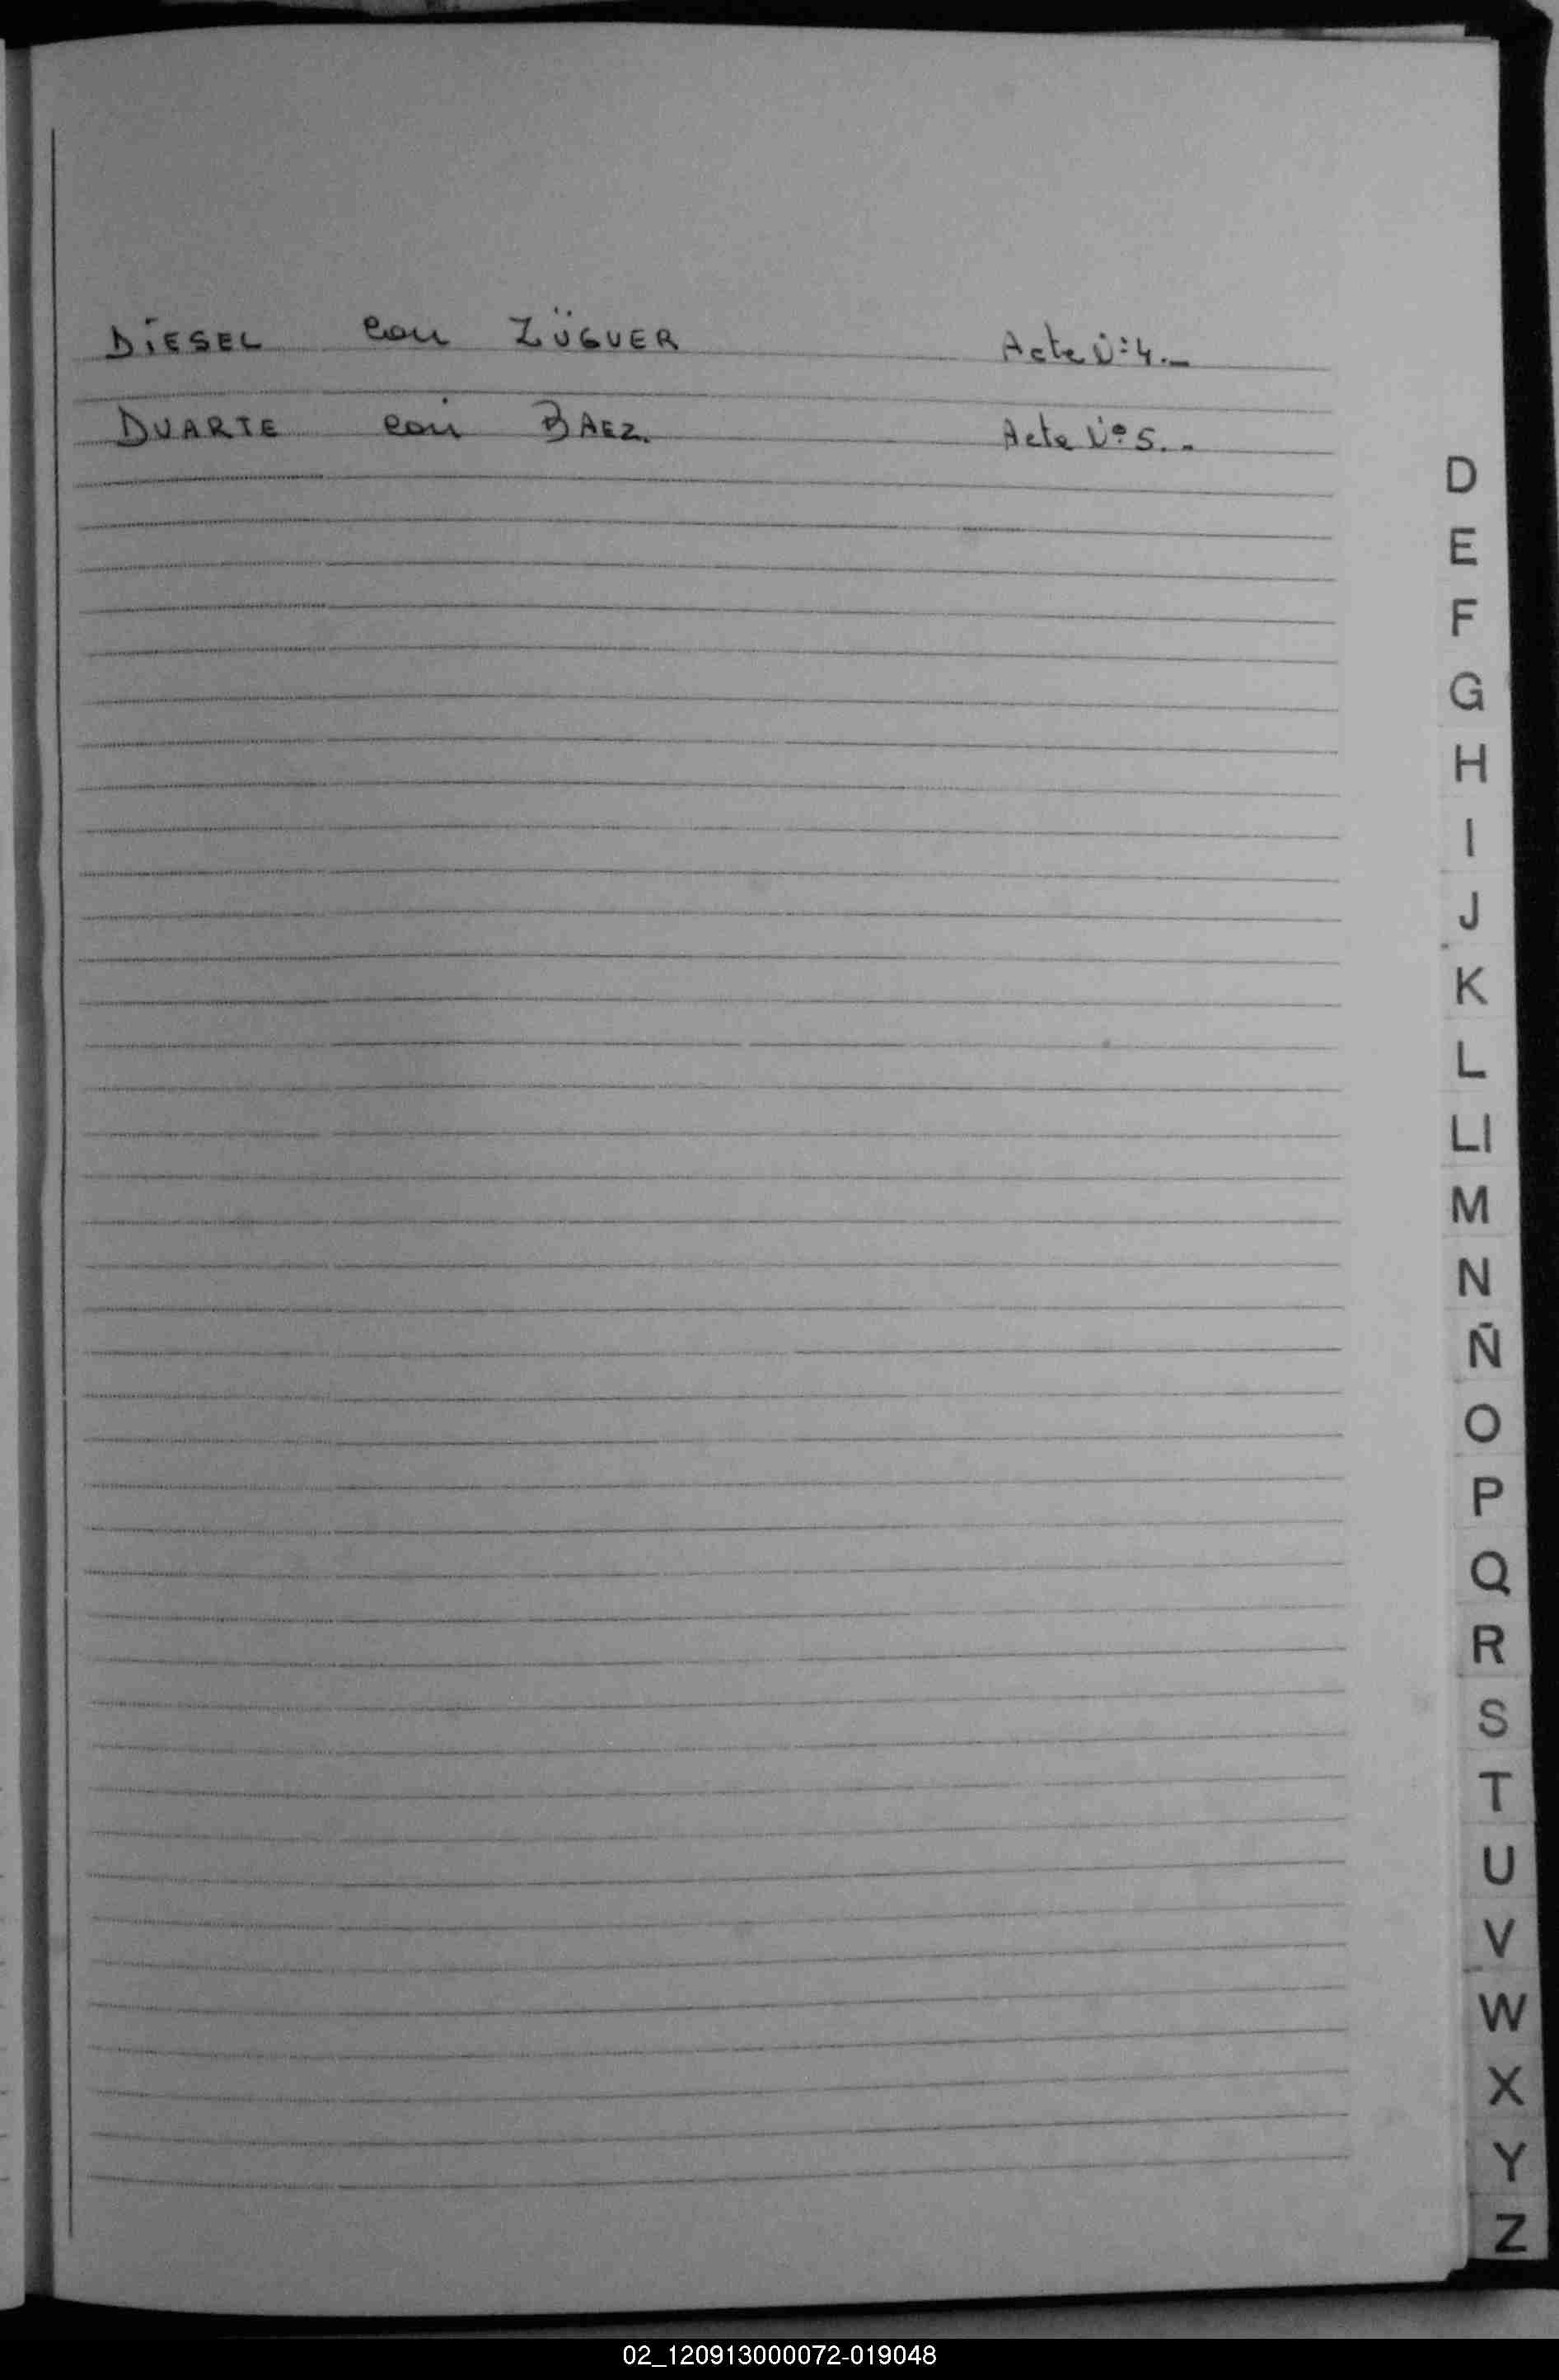 DIESEL con ZÜGUER Acta Nº 4.-
DUARTE con BAEZ. Acta Nº 5.-
D
E
F
G
H
I
J
K
L
Ll
M
N
Ñ
O
P
Q
R
S
T
U
V
W
X
Y
Z
02_120913000072-019048